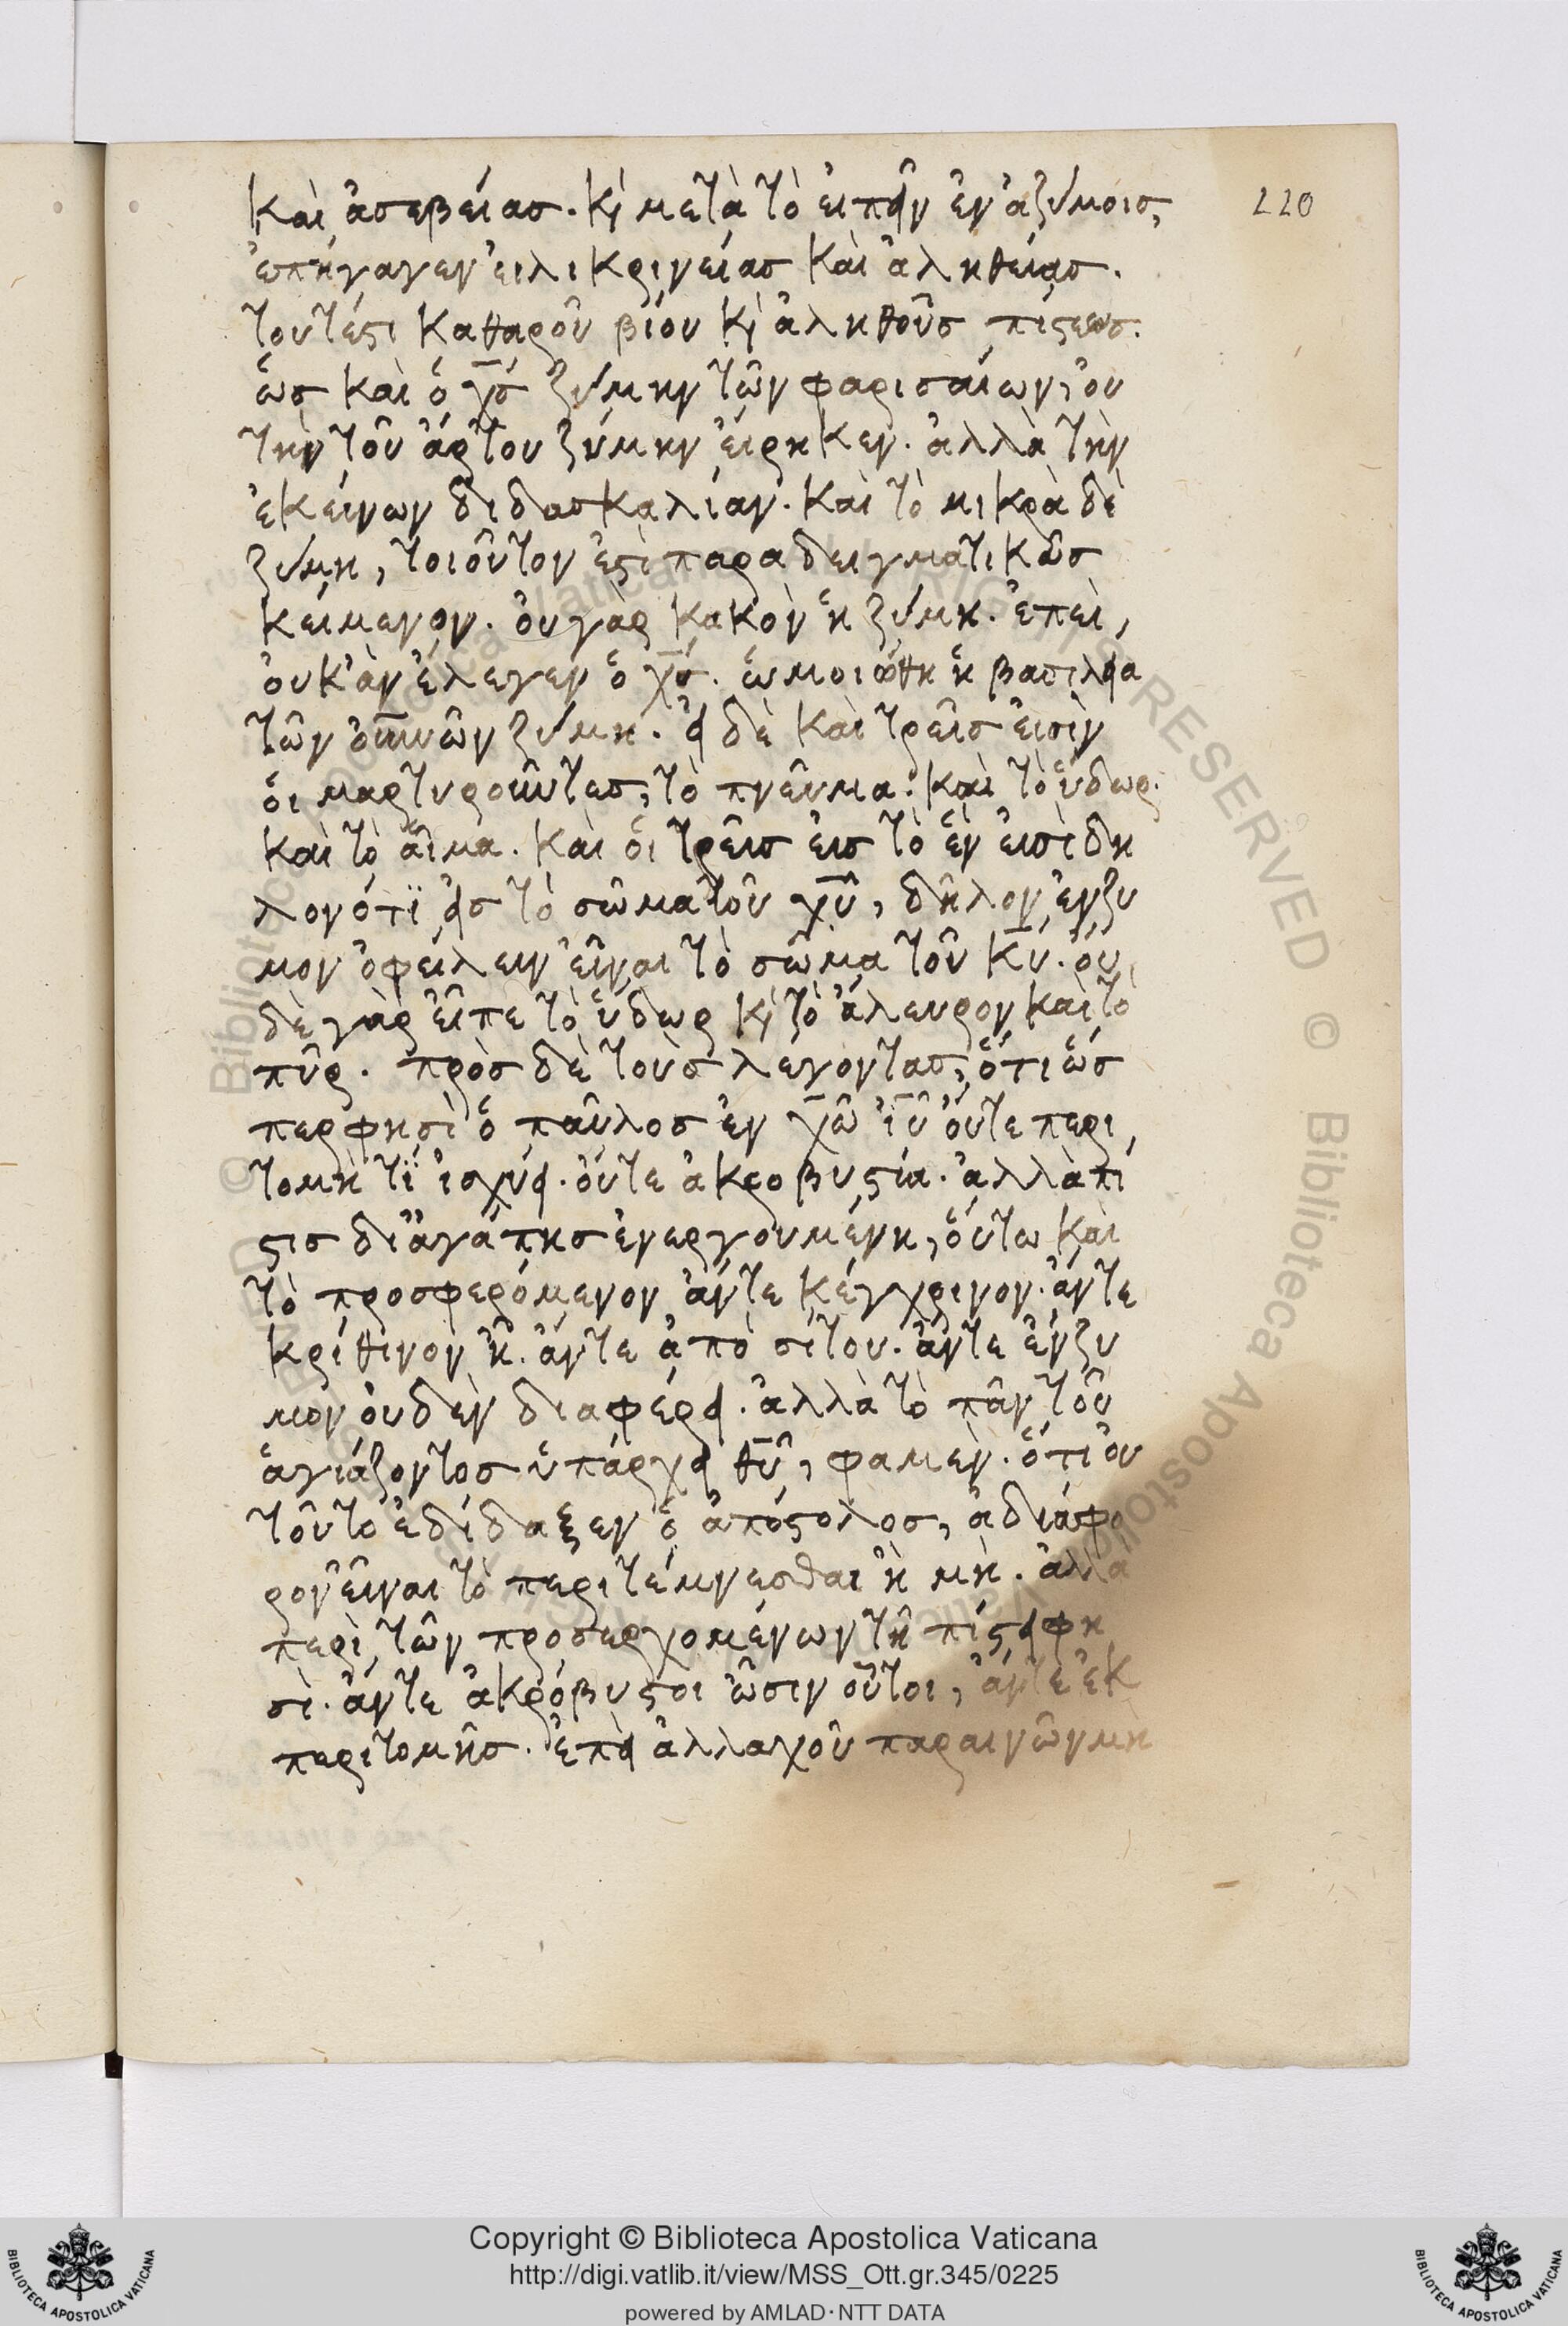 καὶ ἀσεβείας. κỳ μετὰ τὸ ἐιπεῖν ἐν ἀζύμοις,
ἐπήγαγεν ἐιλικρινείας καὶ ἀληθείας.
τουτέϛι καθαροῦ βίου κỳ ἀληθοῦς πίϛεως.
ὡς καὶ ὁ χ̅ς̅ ζύμην τῶν φαρισαίων, ὀυ
τὴν τοῦ ἄρτου ζύμην ἔιρηκεν. ἀλλὰ τὴν
ἐκείνων διδασκαλίαν. καὶ τὸ μικρὰ δὲ
ζύμη, τοιοῦτον ἐϛὶ παραδειγματικῶς
κείμενον. ὀυ γὰρ κακὸν ἡ ζύμη. ἐπεὶ,
ὀυκ ἂν ἔλεγεν ὁ χ̅ς̅. ὡμοιώθη ἡ βασιλεία
τῶν ὀυ̅νῶν ζύμη. εἰ δὲ καὶ τρεῖς ἐισὶν
ὁι μαρτυροῦντες, τὸ πνεῦμα. καὶ τὸ ὕδωρ.
καὶ τὸ αἷμα. καὶ ὁι τρεῖς ἐις τὸ ἕν ἐισὶ δη
λονότϊ εἰς τὸ σῶμα τοῦ χ̅υ̅, δῆλον ἔνζυ
μον ὀφείλειν εἶναι τὸ σῶμα τοῦ κ̅υ̅. ὀυ
δὲ γὰρ εἶπε τὸ ὕδωρ κỳ τὸ ἄλευρον καὶ τὸ
πῦρ. πρὸς δὲ τοὺς λέγοντας, ὅτι ὥσ
περ φησὶ ὁ παῦλος ἐν χ̅ῶ̅ ἰ̅υ̅ ὄυτε περι
τομὴ τϊ ἰσχύει. ὄυτε ἀκροβυϛία. ἀλλὰ πί
ϛις δι ἀγάπης ἐνεργουμένη, ὅυτω καὶ
τὸ προσφερόμενον ἄντε κέγχρινον. ἄντε
κρίθινον ἦ. ἄντε ἀπὸ σίτου. ἄντε ἔνζυ
μον ὀυδὲν διαφέρει. ἀλλὰ τὸ πᾶν τοῦ
ἁγιάζοντος ὑπάρχει θ̅υ̅, φαμὲν. ὅτι ὀυ
τοῦτο ἐδίδαξεν ὁ ἀπόϛολος, ἀδιάφο
ρον εἶναι τὸ περιτέμνεσθαι ἢ μὴ. ἀλλὰ
περὶ τῶν προσερχομένων τῆ πίϛει φη
σὶ. ἄντε ἀκρόβυϛοι ὦσιν οὗτοι, ἄντε ἐκ
περιτομῆς. ἐπεὶ ἀλλαχοῦ παραινῶν μὴ
220
Copyright © Biblioteca Apostolica Vaticana
http://digi.vatlib.it/view/MSS_Ott.gr.345/0225
powered by AMLAD·NTT DATA